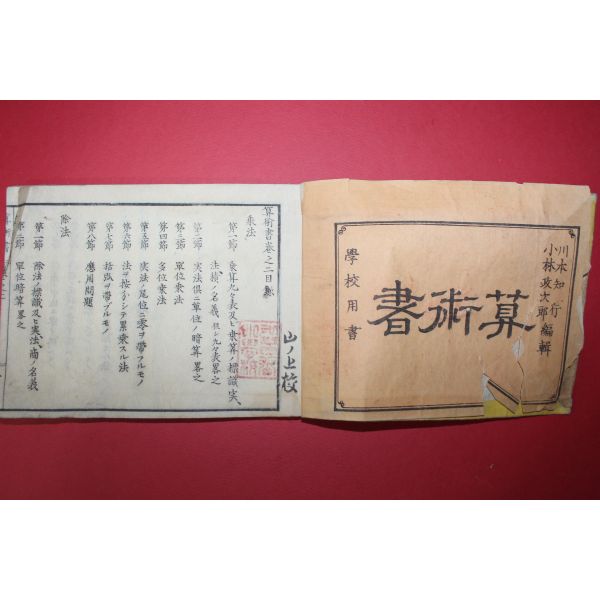 川本知行
小林政次郎 編輯
算術書
學校用書
山ノ上校
算術書卷之二目録
乘法
第一節 乘算九々表及ヒ乘算ノ標識実、
法積ノ名義 但シ九々表畧之
第二節 実法俱ニ單位ノ暗算畧之
第三節 單位乘法
第四節 多位乘法
第五節 実法ノ尾位ニ零ヲ帶フルモノ
第六節 法ヲ按分シテ累乘スル法
第七節 括弧ヲ帶ブルモノ
第八節 應用問題
除法
第一節 除法ノ標識及ヒ実法、商ノ名義
第二節 單位暗算畧之